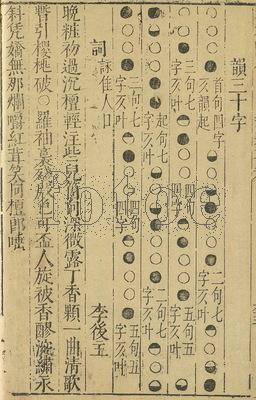 韻三十字
首句四字仄韻起 二句七字仄叶
三句七字 四句 五句五字仄叶
起句七字仄叶 二句七字仄叶
三句七字 四句 字仄叶 五句五字仄叶
詞 詠佳人口 李後主
晚粧初過沉檀輕注些兒箇向深微露丁香顆一曲清歌
暫引櫻桃破○羅袖裛殘殷色可盃人旋被香醪涴繡牀
斜凭嬌無那爛嚼紅茸笑向檀郎唾